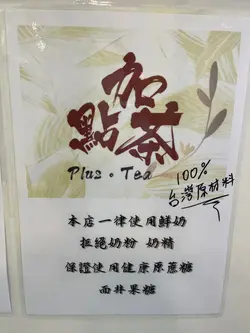 加點茶
Plus。Tea
100%
台灣原材料
本店一律使用鮮奶
拒絕奶粉 奶精
保證使用健康原蔗糖
而非果糖